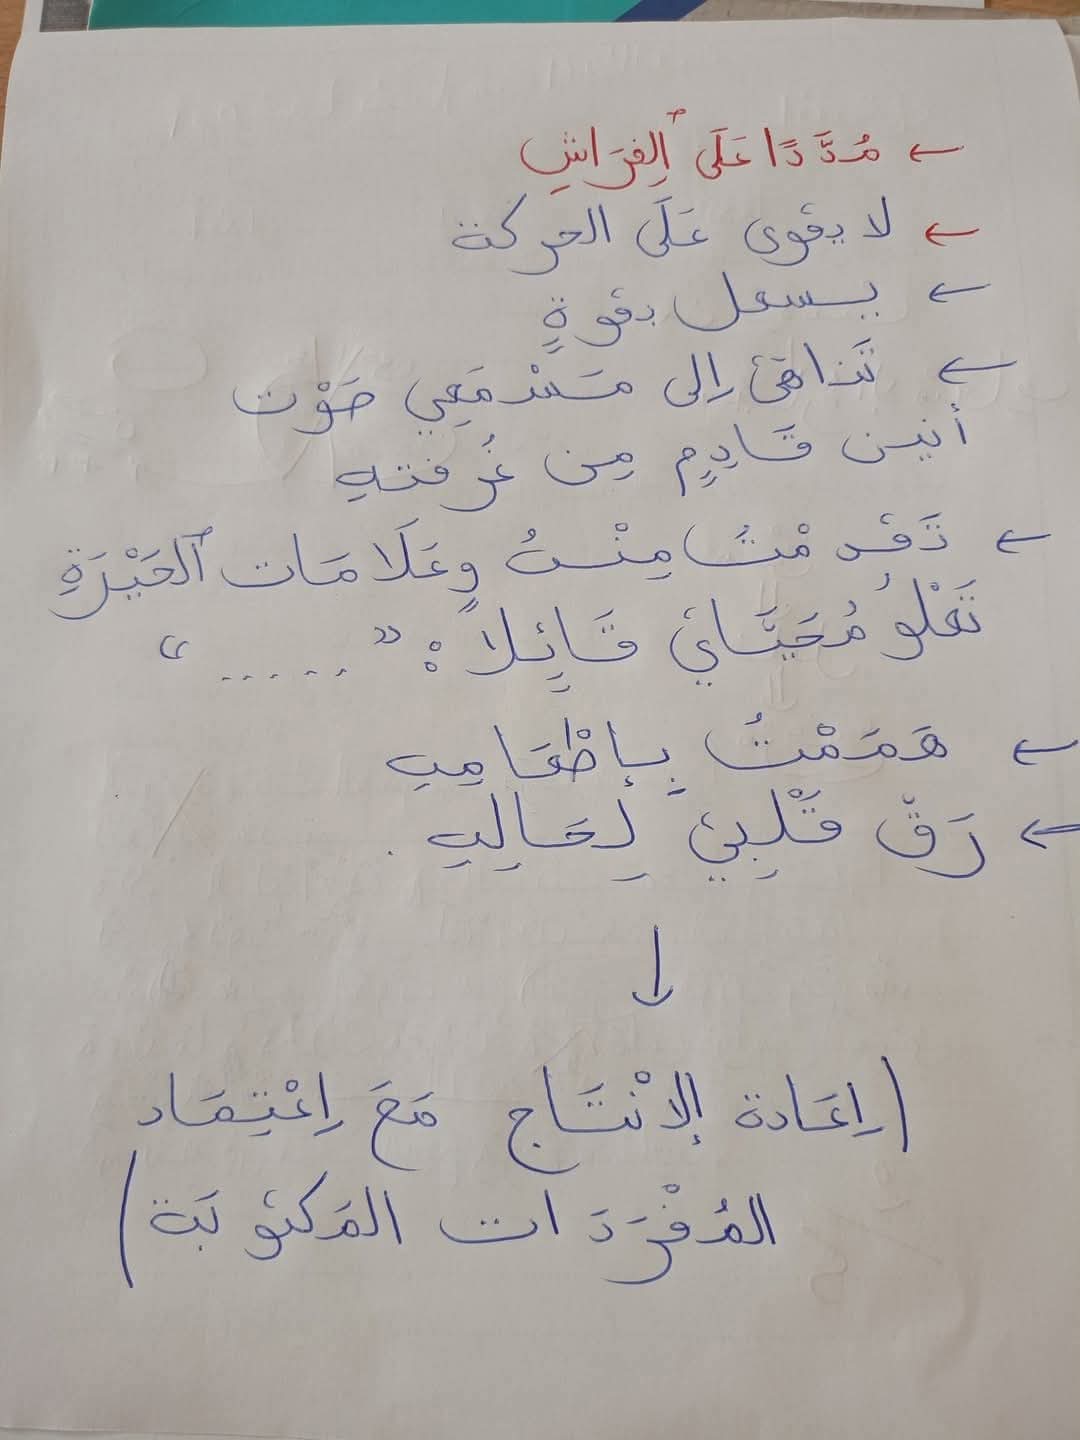 ← مُدَّدًا عَلَى الفِرَاشِ
← لا يقوى عَلَى الحركة
← يسعل بقوةٍ
← تَناهَى إلى مَسْمَعِي صَوْت
أنين قَادِمٍ مِن غُرفتهِ
← تَقَدَّمْتُ مِنْهُ وعَلَامَات الحَيْرَةِ
تَعْلُو مُحَيَّايَ قَائِلاً : " ..... "
← هَمَمْتُ بِإطْعَامِهِ
← رَقَّ قَلْبِي لِحَالِهِ .
↓
(إعَادة الإنْتَاج مَعَ اِعْتِمَاد
المُفْرَدَات المَكتوبَة)